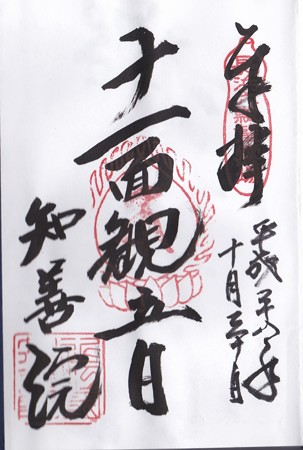 奉拝
平成二十八年
十月三十日
十一面観音
知善院